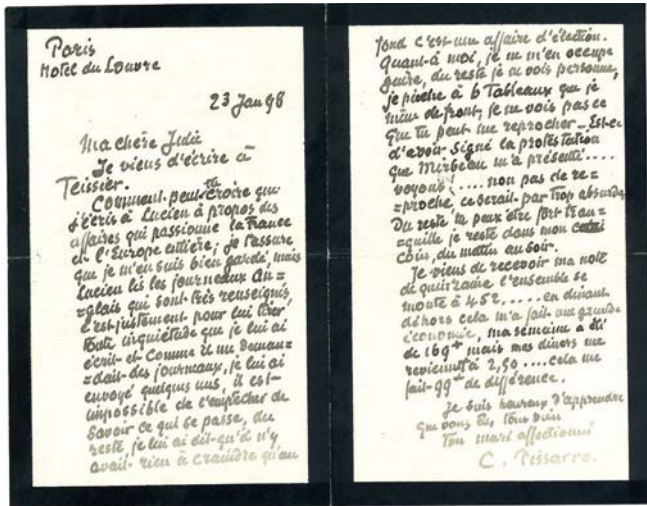 Paris
Hotel du Louvre
23 Jan 98
Ma chère Julie
Je viens d'écrire à
Teissier.
Comment peut tu croire que
j'écris à Lucien à propos des
affaires qui passionne la France
et l'Europe entière; je t'assure
que je m'en suis bien gardé, mais
Lucien lis les journeaux An=
=glais qui sont très renseignés,
c'est justement pour lui tirer
toute inquiétude que je lui ai
écrit et comme il me deman=
=dait des journeaux, je lui ai
envoyé quelques uns, il est
impossible de l'empêcher de
savoir ce qui se passe, du
reste, je lui ai dit qu'il n'y
avait rien à craindre qu'au
fond c'est un affaire d'élection.
Quant à moi, je ne m'en occupe
guère, du reste je ne vois personne,
je pioche à 6 Tableaux que je
mène de front, je ne vois pas ce
que tu peut me reprocher – Est-ce
d'avoir signé la protestation
que Mirbeau m'a présenté....
voyons (.... non pas de re=
=proche, ce serait par trop absurde
Du reste tu peux être fort tran=
=quille je reste dans mon
coin, du matin au soir.
Je viens de recevoir ma note
de quinzaine l'ensemble se
monte à 452...... en dinant
déhors cela m'a fait une grande
économie, ma semaine a été
de 169 mais mes diners me
reviennent à 2,50 .... cela me
fait 99 de différence.
Je suis heureux d'apprendre
que vous êtes tous bien
Ton mari affectionné
C. Pissarro.